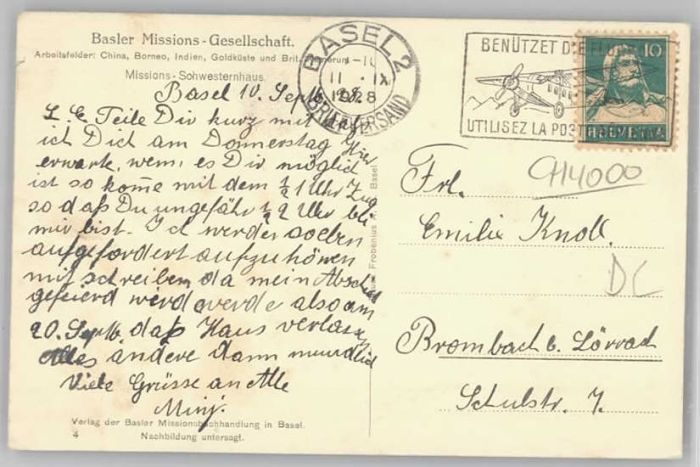 Basler Missions-Gesellschaft.
Arbeitsfelder: China, Borneo, Indien, Goldküste und Brit.
Missions-Schwesternhaus.
Basel 10. Sept. 28
L. E. Teile Dir kurz mit daß
ich Dich am Donnerstag hier
erwarte, wenn es Dir möglich
ist so kom̅e mit dem ½1 Uhr Zug
so daß Du ungefähr ½2 Uhr bei
mir bist. Ich werde soeben
aufgefordert aufzuhören
mit schreiben da mein Abschied
gefeierd wird werde also am
20. Septb. das Haus verlassen
Alles andere dann mündlich
Viele Grüsse an Alle
Minj.
Verlag der Basler Missionsbuchhandlung in Basel.
4 Nachbildung untersagt.
Frobenius A. G. Basel
BASEL 2
11. IX
1928
BRIEFVERSAND
BENÜTZET DIE
UTILISEZ LA POSTE
10
HELVETIA
9114000
Frl.
Emilie Knoll.
DC
Brombach b. Lörrach
Schulstr. 7.